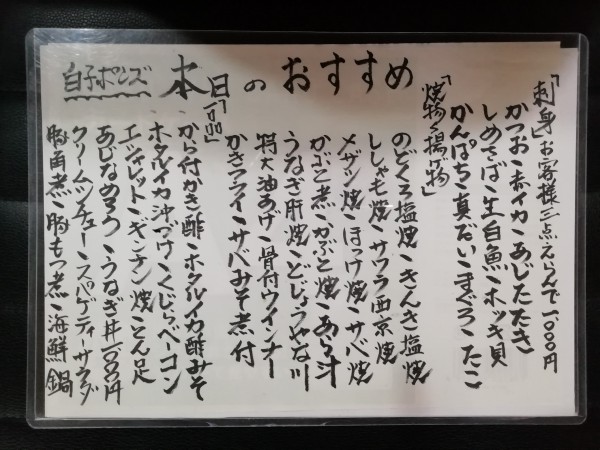 本日のおすすめ
白子ポンズ
「刺身」お客様三点えらんで一〇〇〇円
かつお・赤イカ・あじたたき
しめさば・生白魚・ホッキ貝
かんぱち・真だい・まぐろ・たこ
「焼物・揚げ物」
のどくろ塩焼・きんき塩焼
ししゃも焼・サワラ西京焼
メザシ焼・ほっけ焼・サバ焼
かぶと煮・かぶと焼・あら汁
うなぎ肝焼・どじょうやな川
特大油あげ・骨付ウインナー
かきフライ・サバみそ煮付
「一品」
から付かき酢・ホタルイカ酢みそ
ホタルイカ沖づけ・くじらベーコン
エシャレット・ギンナン焼・とん足
あじなめろう・うなぎ丼一〇〇〇円
クリームシチュー・スパゲティーサラダ
豚角煮・豚もつ煮・海鮮鍋